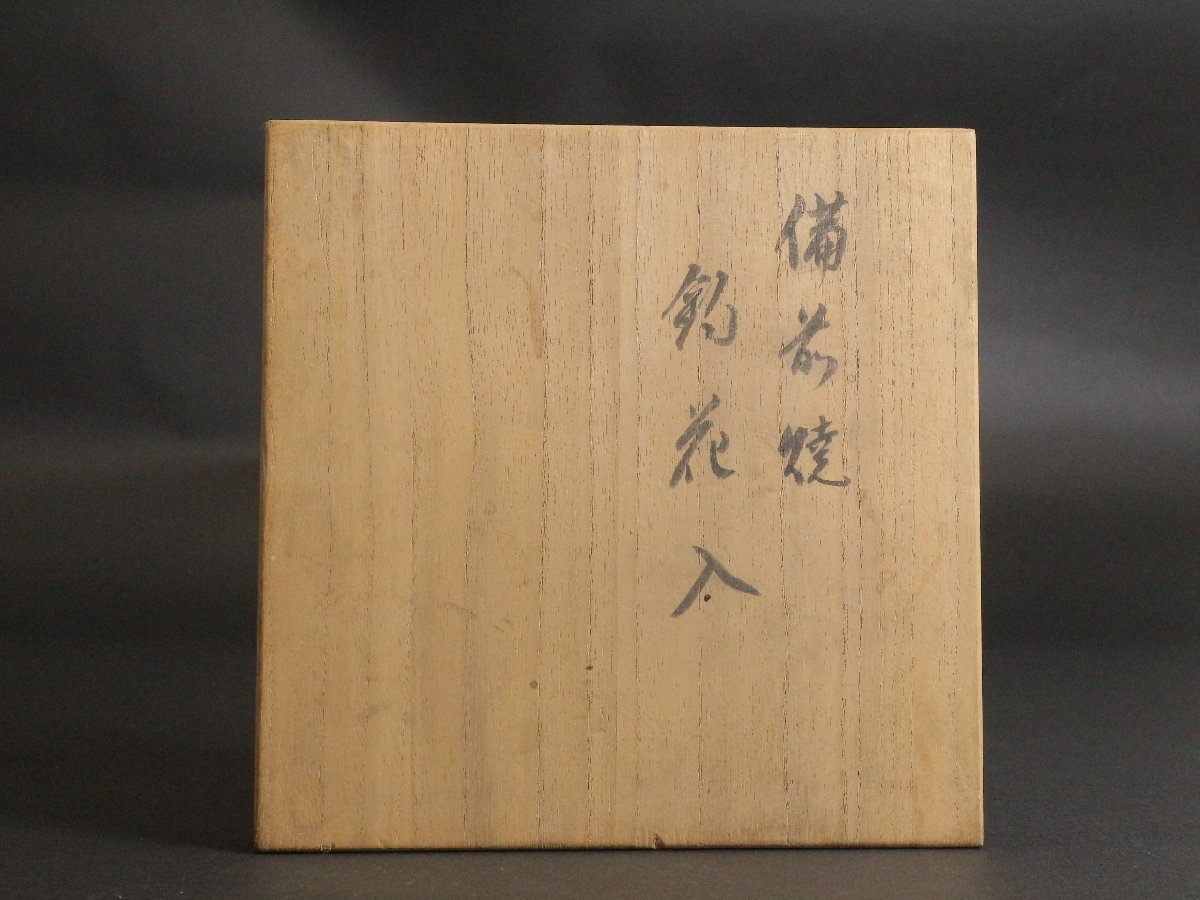 備前焼
釣花入